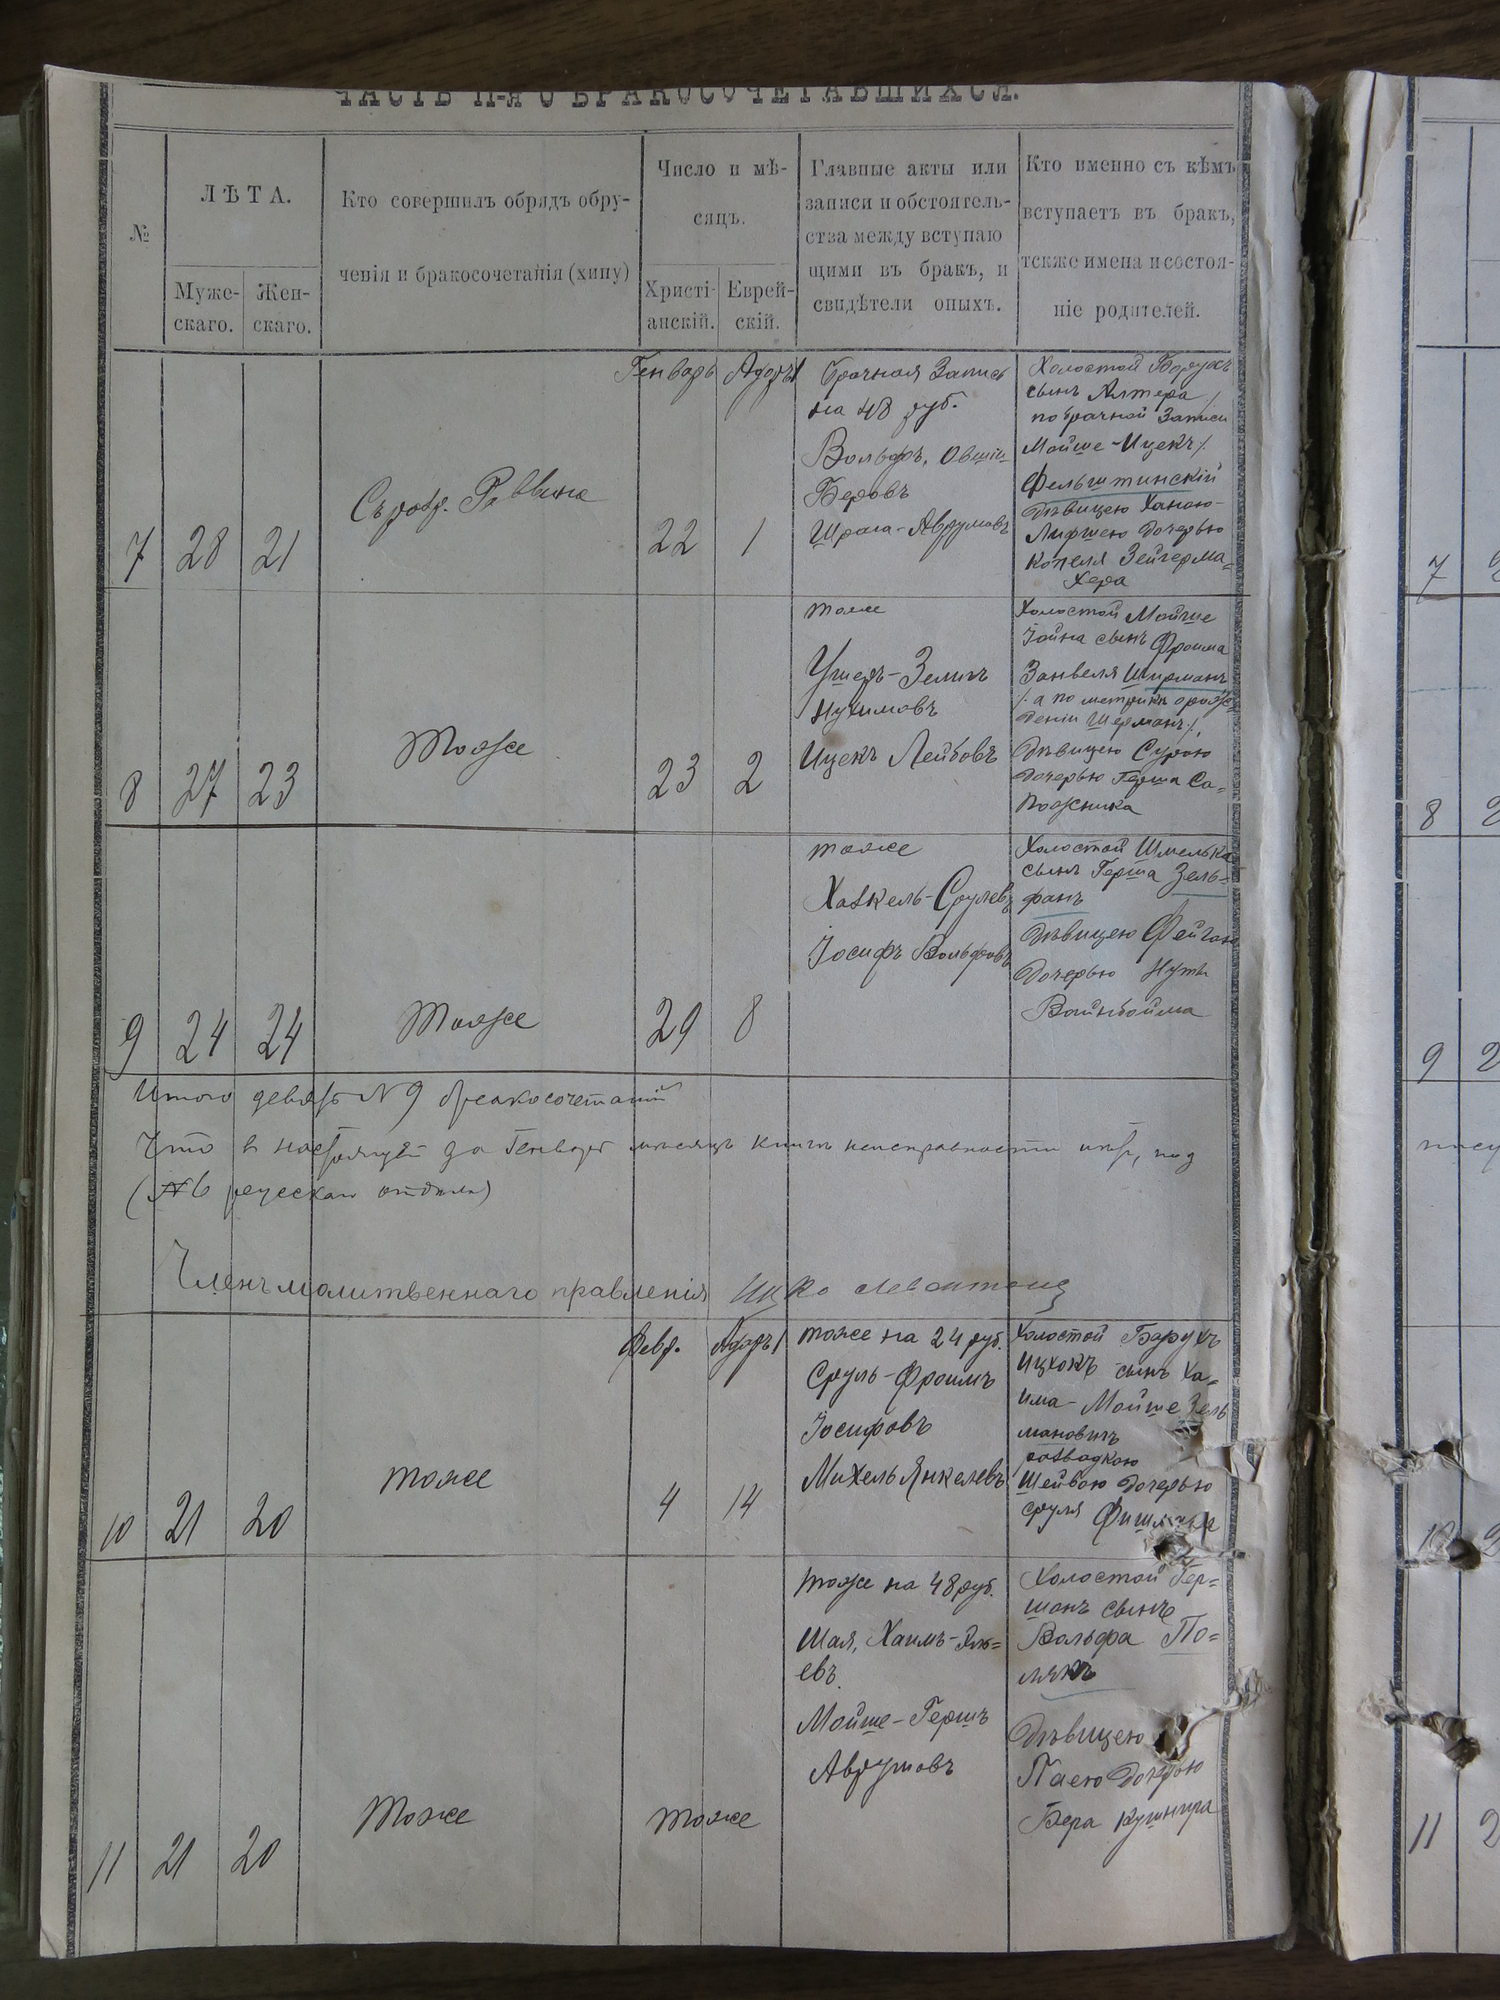 ЧАСТЬ II-Я О БРАКОСОЧЕТАВШИХСЯ.
№
ЛѢТА.
Муже-
скаго.
Жен-
скаго.
Кто совершилъ обрядъ обру-
ченія и бракосочетанія (хипу)
Число и мѣ-
сяцъ.
Христі-
анскій.
Еврей-
скій.
Главные акты или
записи и обстоятель-
ства между вступаю
щими въ бракъ, и
свидѣтели оныхъ.
Кто именно съ кѣмъ
вступаетъ въ бракъ,
также имена и состоя-
ніе родителей.
7
28
21
Съ разр. Раввина
Генварь
22
Адаръ 1
1
Брачная Запись
на 48 руб.
Вольфъ, Овшій
Беровъ
Шрага-Аврумовъ
Холостой Борухъ
сынъ Алтера /
по брачной Записи
Мойше-Ицекъ /
Фельштинскій
дѣвицею Ханою-
Лифшею дочерью
Копеля Зейгерма=
хера
8
27
23
Тоже
23
2
тоже
Ушеръ-Зелигъ
Нухимовъ
Ицекъ Лейбовъ
Холостой Мойше
Іойна сынъ Фроима
Занвеля Ширманъ
/: а по метрикѣ о рож-
деніи Шерманъ /
дѣвицею Сурою
дочерью Герша Са=
пожника
9
24
24
Тоже
29
8
тоже
Хаскель-Срулевъ
Іосифъ Вольфовъ
Холостой Шмелька
сынъ Герша Зель=
фанъ
дѣвицею Фейгою
дочерью Нуты
Вайнбойма
Итого девять N 9 бракосочетаній
Что в настоящей за Генварь мѣсяцъ книгѣ неисправности нѣтъ, под
русскаго отдѣла)
Членъ молитвеннаго правленія Ицко
10
21
20
тоже
Февр.
4
Адаръ 1
14
тоже на 24 руб.
Сруль-Фроимъ
Іосифовъ
Михель Янкелевъ
Холостой Борухъ
Ицхокъ сынъ Ха=
има-Мойше Зель
мановичъ
разводкою
Шейвою дочерью
Сруля
11
21
20
Тоже
тоже
тоже на 48 руб.
Шая, Хаимъ-Эль=
евъ.
Мойше-Гершъ
Аврумовъ
Холостой Гер=
шонъ сынъ
Вольфа По=
лякъ
дѣвицею
Паею дочерью
Бера Кушнира
7
8
9
10
11